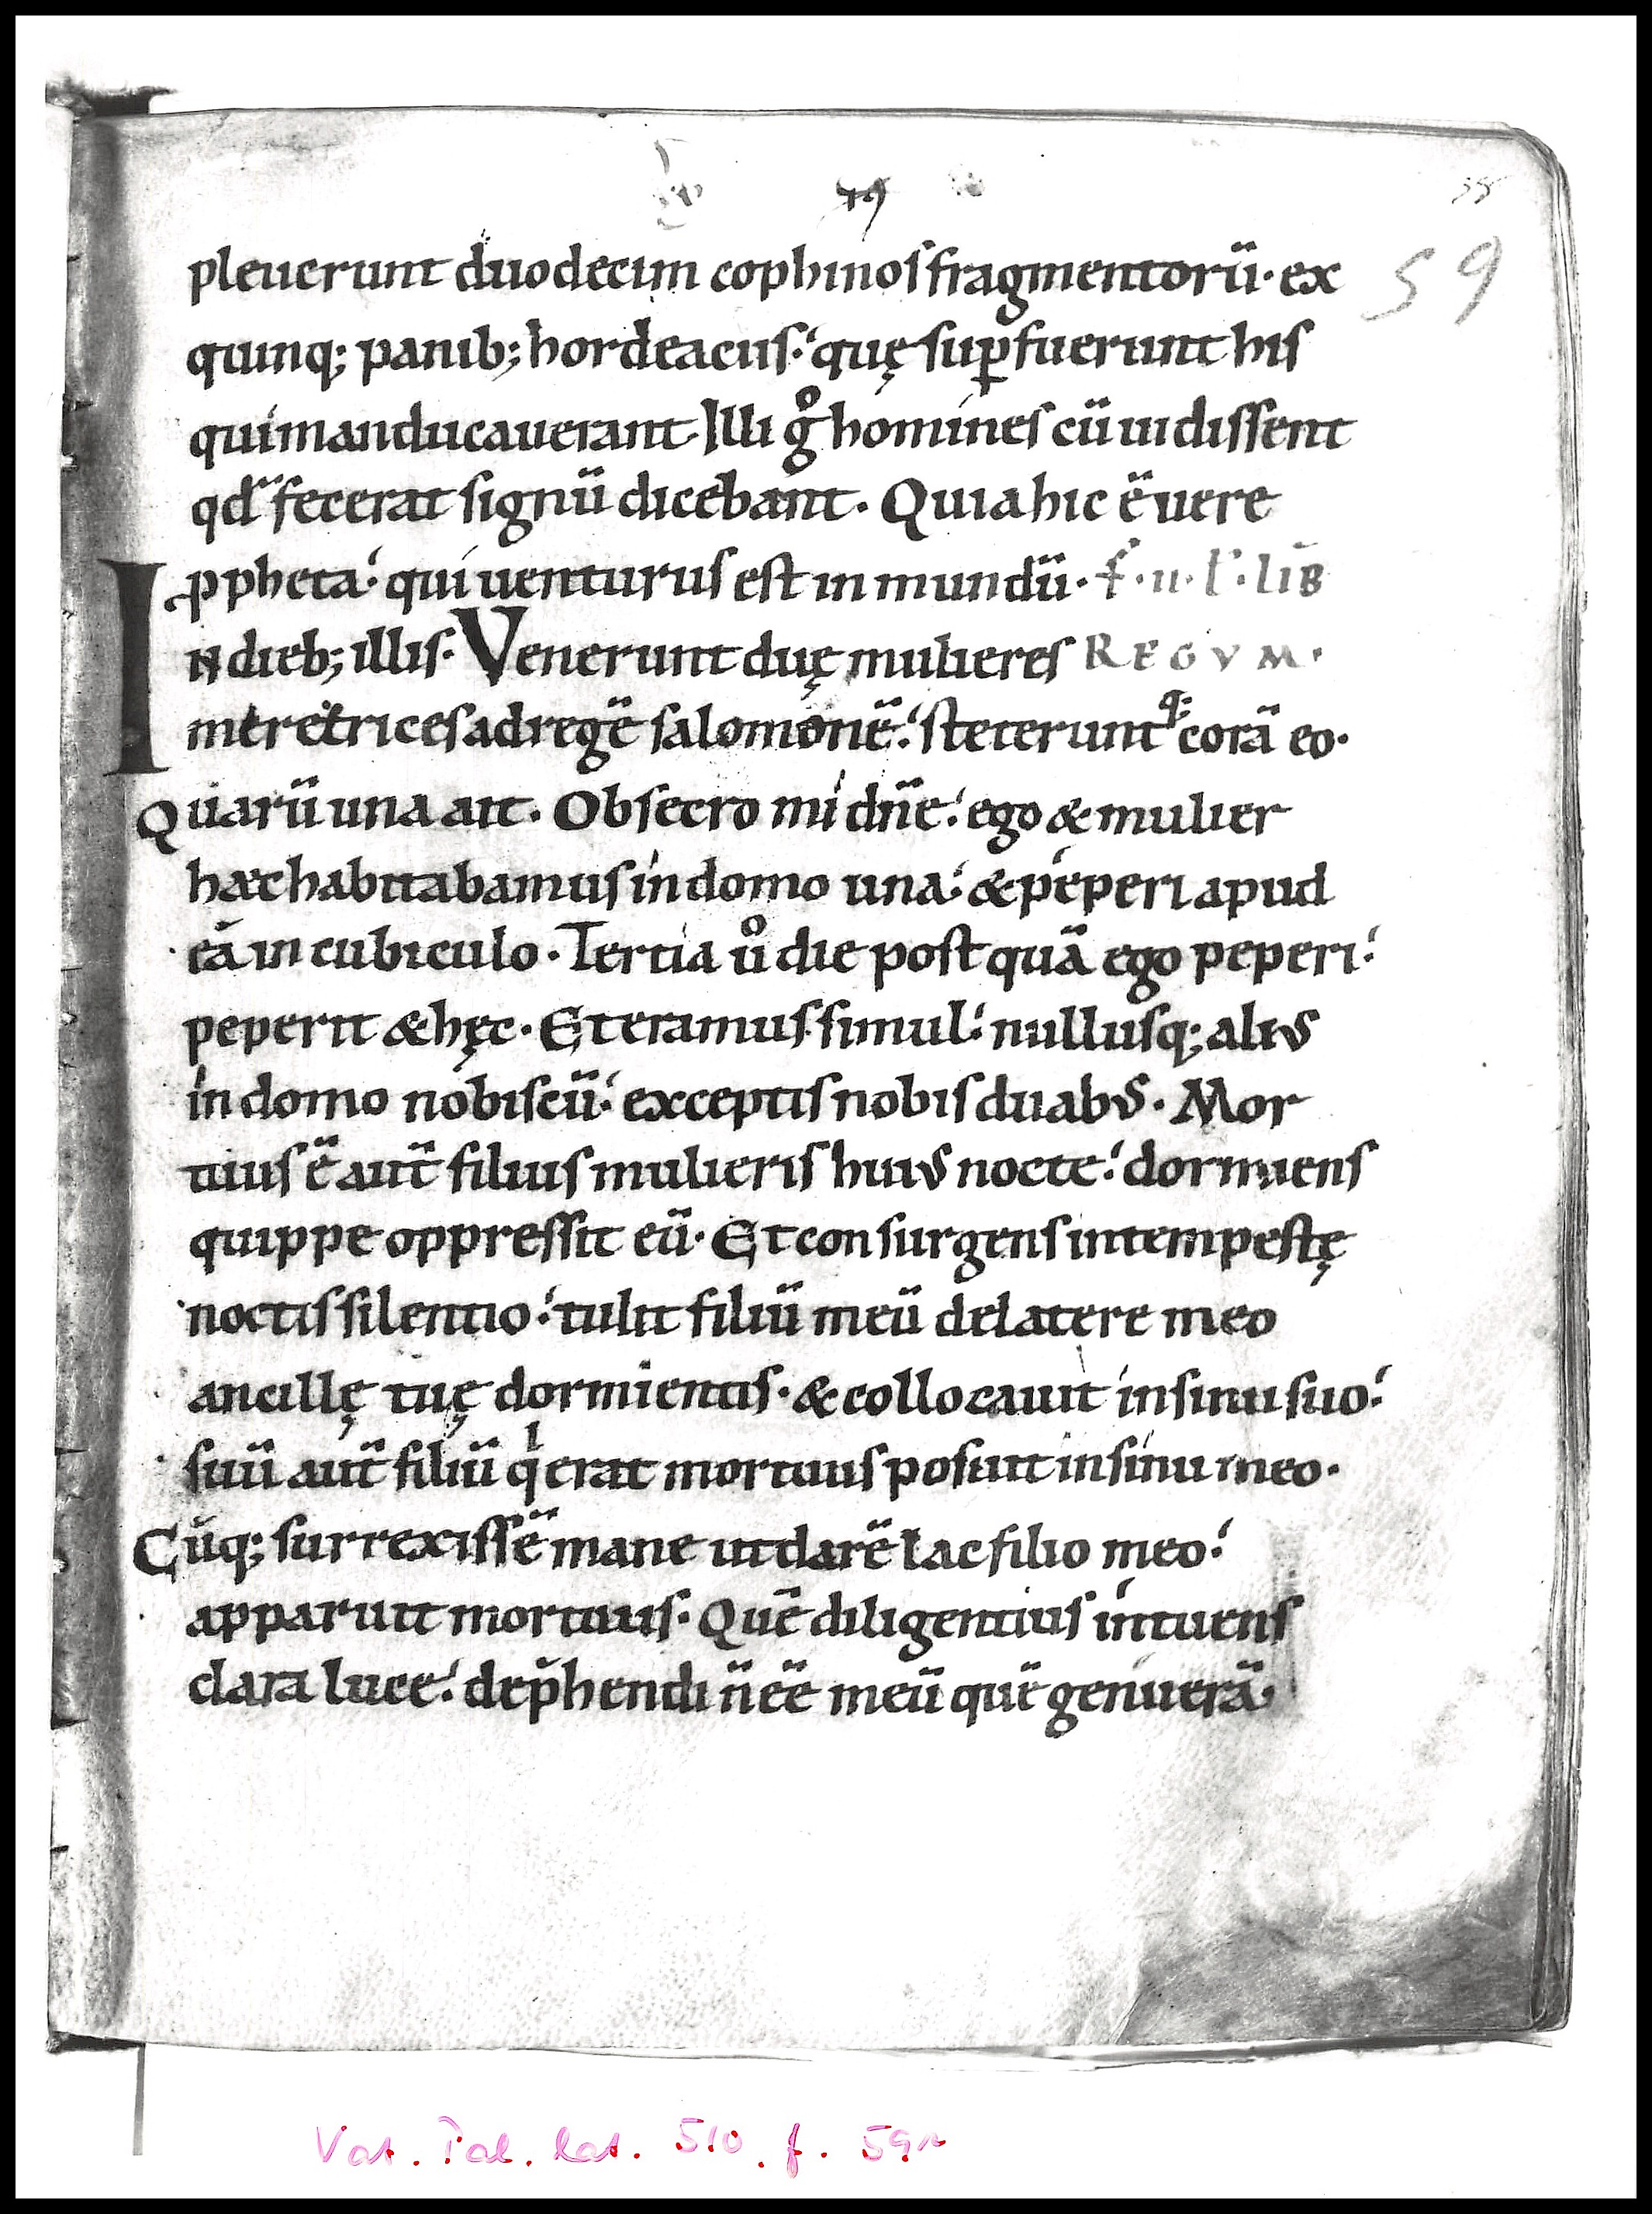 59
pleuerunt duodecim cophinos fragmentorū· ex
quinq; panib; hordeacus: quę sup̱fuerunt his
qui manducauerant· Illi gͦ homines cū uidissent
qd̄ fecerat signū dicebant· Quia hic ē uere
ꝓpheta: qui uenturus est in mundū· f· ii· l· lib̄
In dieb; illis· Venerunt duę mulieres REGVM·
meretrices ad regē salomonē: steterunt q; corā eo·
Quarū una ait· Obsecro mi dn̄e: ego & mulier
hæc habitabamus in domo una: & peperi apud
eā in cubiculo· Tertia uͦ die postquā ego peperi:
peperit & hęc· Et eramus simul: nullusq; alius
in domo nobiscū: exceptis nobis duabus· Mor
tuus ē aut̄ filius mulieris huius nocte: dormiens
quippe oppressit eū· Et consurgens intempestę
noctis silentio: tulit filiū meū de latere meo
ancillę tuę dormientis· & collocauit in sinu suo:
suū aut̄ filiū qⁱ erat mortuus posuit in sinu meo·
Cūq; surrexissē mane ut darē lac filio meo:
apparuit mortuus· Quē diligentius intuens
clara luce: dep̄hendi n̄ eē meū quē genuerā·
Vat. Pal. lat. 510. f. 59r